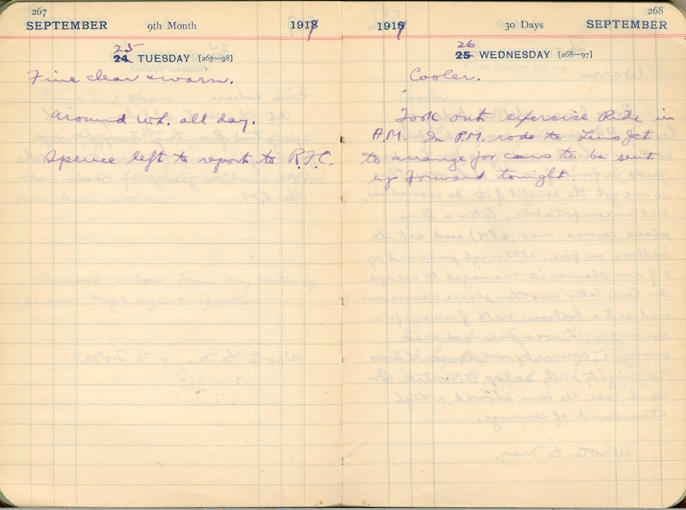 267
SEPTEMBER 9th Month 1917
25
24 TUESDAY [267—98]
Fine clear & warm.
Around Wh. all day.
Spence left to report to R.F.C.
268
1917 30 Days SEPTEMBER
26
25 WEDNESDAY [268—97]
Cooler.
Took out exercise Ride in
A.M. In P.M. rode to Jct
to arrange for cars to be sent
up forward tonight.